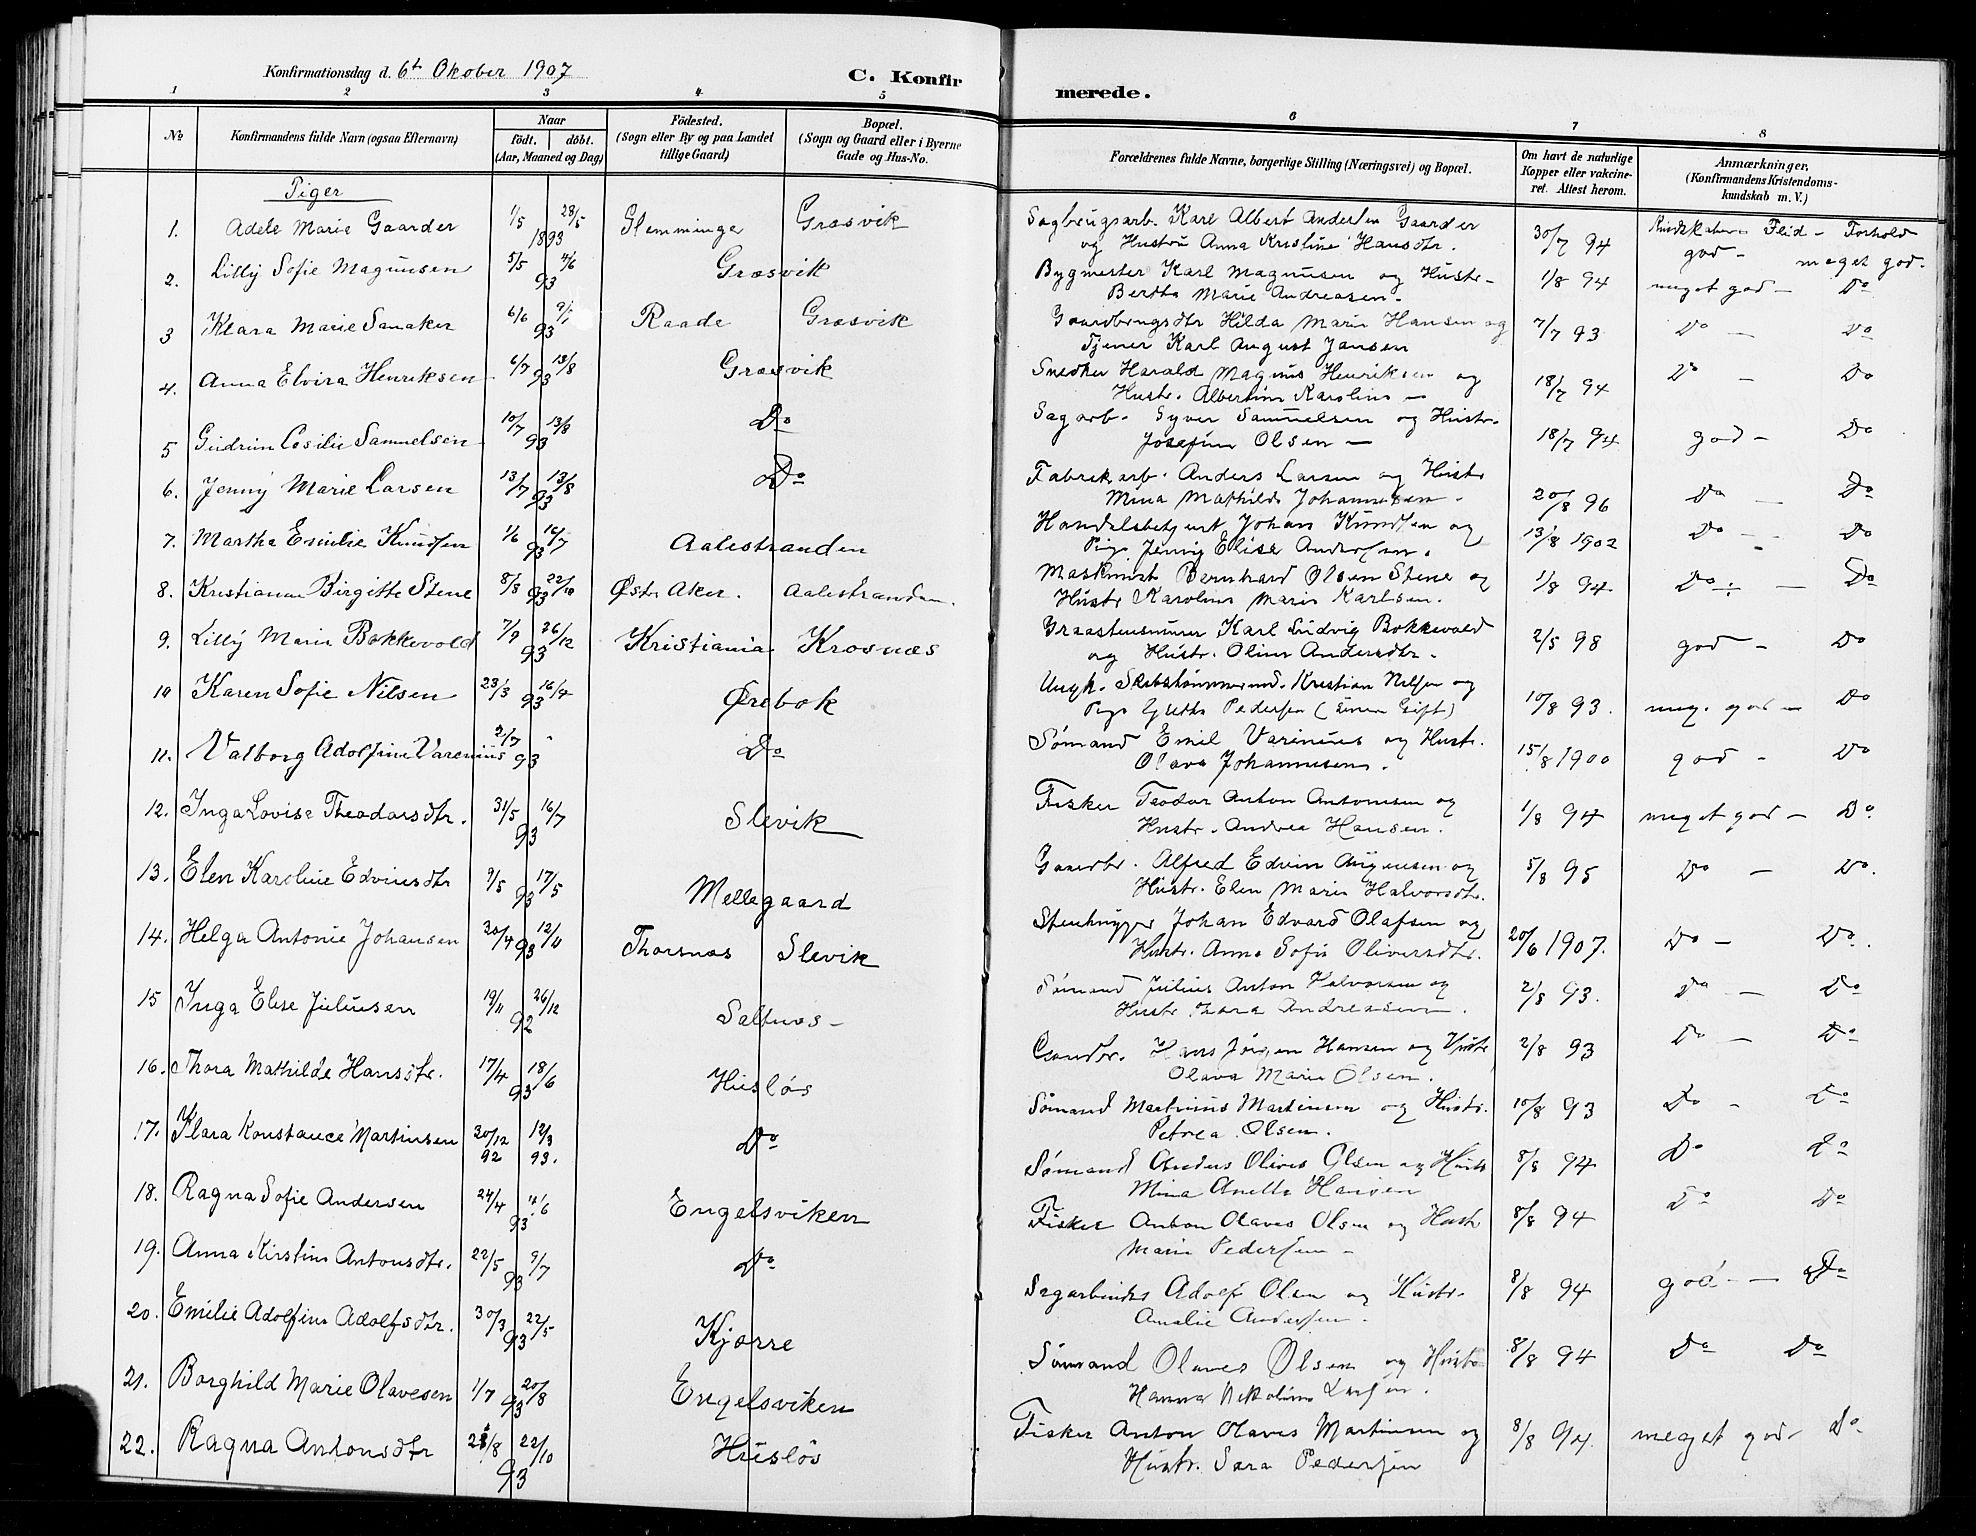 Konfirmationsdag d. 6t Okober 1907
C. Konfirmerede.
1 2 3 4 5 6 7 8
No
Konfirmandens fulde Navn (ogsaa Efternavn)
Naar
födt. döbt.
(Aar, Maaned og Dag)
Födested.
(Sogn eller By og paa Landet
tillige Gaard)
Bopæl.
(Sogn og Gaard eller i Byerne
Gade og Hus-No.
Forældrenes fulde Navne, borgerlige Stilling (Næringsvei) og Bopæl.
Om havt de naturlige
Kopper eller vakcine-
ret. Attest herom.
Anmærkninger,
(Konfirmandens Kristendoms-
kundskab m. V.)
Piger
Kundskaber - Flid - Forhold
1. Adele Marie Gaarder 1/5 28/5 1893 Glemminge Græsvik Sagbrugsarb. Karl Albert Andersen Gaarder 30/7 94 god - meget god.
og Hustru Anna Kristine Hansdtr.
2. Lilly Sofie Magnusen 5/5 4/6 93 Græsvik Bygmester Karl Magnusen og Hustr- 1/8 94 meget god - Do
Bertha Marie Andreasen -
3 Klara Marie Sanaker 6/6 93 Raade Græsvik Gaardbrugsdtr Hilda Marie Hansen og 7/7 93 Do - Do
Tjener Karl August Jansen
4. Anna Elvira Henriksen 6/7 13/8 93 Græsvik Snedker Harald Magnus Henriksen og 18/7 94 Do - Do
Hustr. Albertine Karoline -
5 Gudrun Cesilie Samuelsen 10/7 13/8 93 Do Sagarb. Syver Samuelsen og Hustr. 18/7 94 god - Do
Josefine Olsen -
6. Jenny Marie Larsen 13/7 13/8 93 Do Fabrikarb. Anders Larsen og Hustr 20/8 96 Do - Do
Mina Mathilde Johannesen.
7. Martha Emilie Knudsen 1/6 16/7 93 Aalestranden Handelsbetjent Johan Knudsen og 13/8 1902 Do - Do
Pige Jenny Elise Andersen.
8. Kristianne Birgitte Stene 8/8 22/10 93 Østr Aker. Aalestranden. Maskinist Bernhard Olsen Stene og 1/8 94 Do - Do
Hustr Karoline Marie Karlsen.
9. Lilly Marie Bakkevold 7/9 26/12 93 Kristiania Krosnæs Graastensmurer Karl Ludvig Bakkevold 2/5 98 god - Do
og Hustr. Oline Andersdtr.
10 Karen Sofie Nilsen 23/3 16/4 93 Ørebæk Ungk. Skibstømmermd. Kristian Nilsen og 10/8 93. meg. god - Do
Pige Pedersen (senere Gift)
11. Valborg Adolfine Varenius 2/7 93 Do Sømand Emil Varenius og Hustr. 15/8 1900 god - Do
Olava Johannesen.
12. Inga Lovise Theodorsdtr. 31/5 16/7 93 Slevik Fisker Teodor Anton Antonsen og 1/8 94 meget god - Do
Hustr. Andrea Hansen.
13. Elen Karoline Edvinsdtr 9/5 17/5 93 Mellegaard Gaardbr. Alfred Edvin Augusen og 5/8 95 Do - Do.
Hustr. Elen Marie Halvorsdtr.
14. Helga Antonie Johansen 30/4 93 Thorsnæs Slevik Stenhugger Johan Edvard Olafsen og 20/6 1907. Do - Do.
Hustr. Anna Sofie Oliversdtr.
15 Inga Elise Juliusen 19/11 26/12 92 Saltnæs - Sømand Julius Anton Halvorsen og 2/8 93. Do - Do
Hustr Thora Andreasen.
16. Thora Mathilde Hansdtr. 17/4 18/6 93 Husløs Gaardbr. Hans Jörgen Hansen og Hustr 2/8 93 Do - Do
Olava Marie Olsen.
17. Klara Konstance Martinsen 30/12 92 12/3 93. Do Sømand Martinius Martinsen og Hustr. 10/8 93 Do - Do
Petrea Olsen.
18. Ragna Sofie Andersen 24/4 93 Engelsviken Sømand Anders Olives Olsen og Hustr 8/8 94 Do Do
Mina Anette Hansen
19. Anna Kirstine Antonsdtr. 22/5 9/7 93 Do Fisker Anton Olaves Olsen og Hustr 8/8 94 Do Do
Marie Pedersen -
20. Emilie Adolfine Adolfsdtr. 30/3 22/5 93 Kjærre Sagarbeider Adolf Olsen og Hustr. 8/8 94 god - Do
Amalie Andersen.
21. Borghild Marie Olavesen 1/7 20/8 93 Engelsviken Sømand Olaves Olsen og Hustr 8/8 94 Do Do
Hanna Nikoline Larsen.
22. Ragna Antonsdtr 22/10 93 Husløs Fisker Anton Olaves Martinsen og 8/8 94. meget god - Do.
Hustr. Sara Pedersen